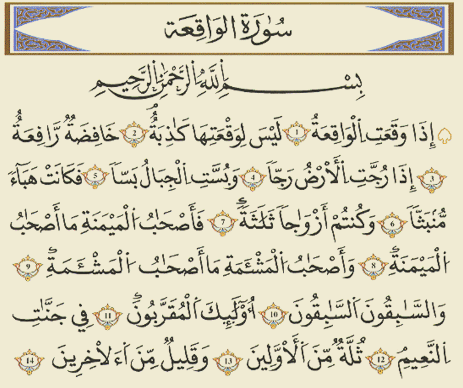 سُورَةُ الوَاقِعَة
بِسْمِ اللَّهِ الرَّحْمَٰنِ الرَّحِيمِ
إِذَا وَقَعَتِ اِ۬لْوَاقِعَةُ 1 لَيْسَ لِوَقْعَتِهَا كَاذِبَةٌ 2 خَافِضَةٌ رَّافِعَةٌ
3 إِذَا رُجَّتِ اِ۬لْأَرْضُ رَجّاً 4 وَبُسَّتِ اِ۬لْجِبَالُ بَسّاً 5 فَكَانَتْ هَبَآءً
مُّنۢبَثّاً 6 وَكُنتُمْ أَزْوَٰجاً ثَلَٰثَةً 7 فَأَصْحَٰبُ اُ۬لْمَيْمَنَةِ مَا أَصْحَٰبُ
اُ۬لْمَيْمَنَةِ 8 وَأَصْحَٰبُ اُ۬لْمَشْـَٔمَةِ مَا أَصْحَٰبُ اُ۬لْمَشْـَٔمَةِ 9
وَالسَّٰبِقُونَ اَ۬لسَّٰبِقُونَ 10 أُوْلَٰٓئِكَ اَ۬لْمُقَرَّبُونَ 11 فِي جَنَّٰتِ
اِ۬لنَّعِيمِ 12 ثُلَّةٌ مِّنَ اَ۬لْأَوَّلِينَ 13 وَقَلِيلٌ مِّنَ اَ۬لْأٓخِرِينَ 14